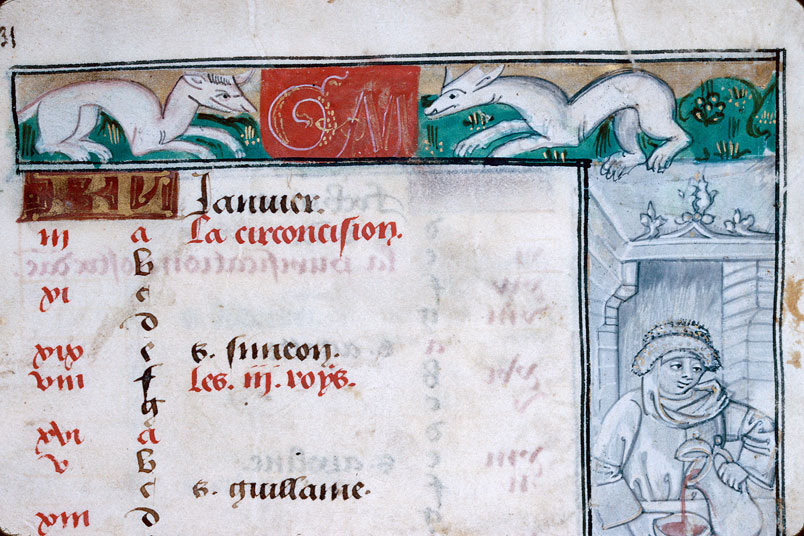 31
KL Januier.
iii a La circoncision.
b
vi c
d
xix e s. simeon.
viii f Les. iii. roys.
g
xvi a
v b
c s. guillame.
xiii d